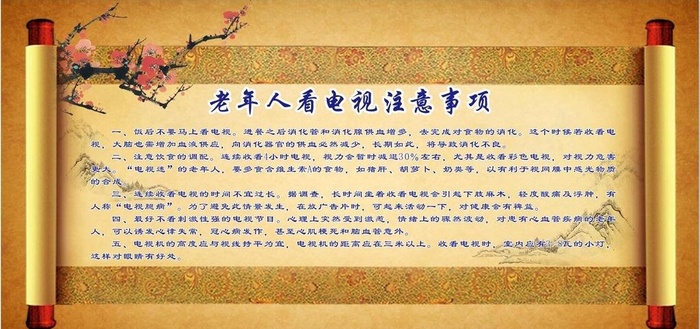 老年人看电视注意事项
一、饭后不要马上看电视。进餐之后消化管和消化腺供血增多，去完成对食物的消化。这个时候若收看电
视，大脑也需增加血液供应，向消化器官的供血必然减少，长期如此，将导致消化不良。
二、注意饮食的调配。连续收看4小时电视，视力会暂时减退30%左右，尤其是收看彩色电视，对视力危害
更大。“电视迷”的老年人，要多食含维生素A的食物，如猪肝、胡萝卜、奶类等，以有利于视网膜中感光物质
的合成。
三、连续收看电视的时间不宜过长。据调查，长时间坐着收看电视会引起下肢麻木，轻度酸痛及浮肿，有
人称“电视腿病”。为了避免此情景发生，在放广告片时，可起来活动一下，对健康会有裨益。
四、最好不看刺激性强的电视节目。心理上突然受到激惹，情绪上的骤然波动，对患有心血管疾病的老年
人，可以诱发心律失常，冠心病发作，甚至心肌梗死和脑血管意外。
五、电视机的高度应与视线持平为宜，电视机的距离应在三米以上。收看电视时，室内应有3-8瓦的小灯，
这样对眼睛有好处。